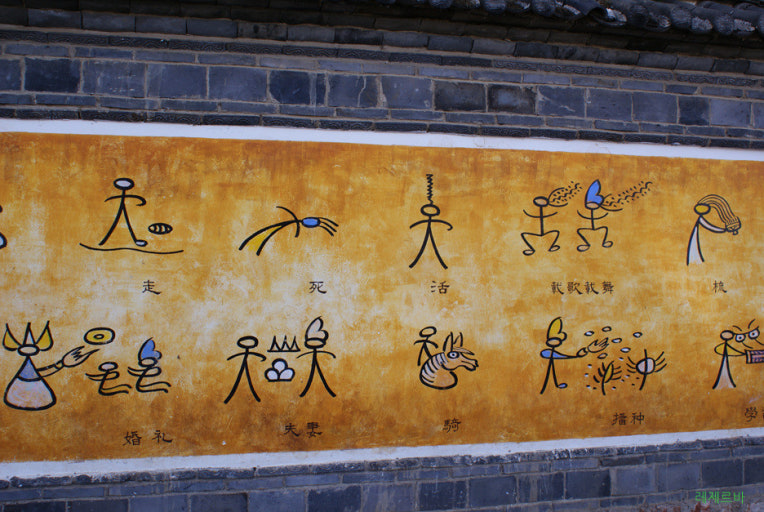 走 死 活 載歌載舞 梳
婚礼 夫妻 騎 播种 学
레제르바